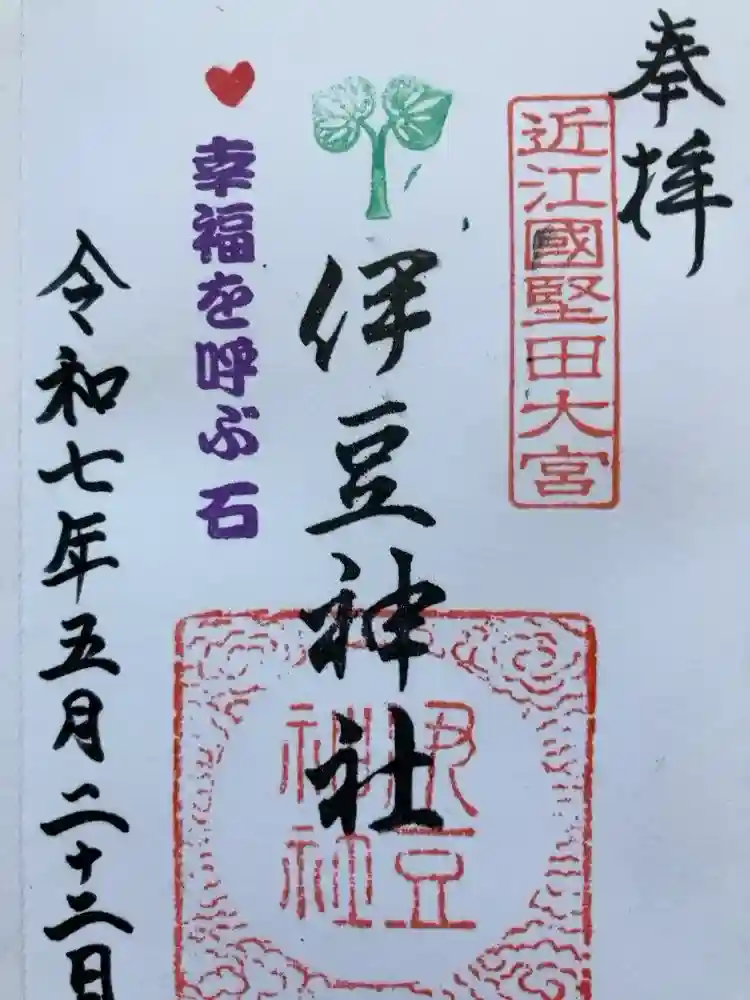 奉拝
近江國堅田大宮
伊豆神社
伊豆
神社
幸福を呼ぶ石
令和七年五月二十三日